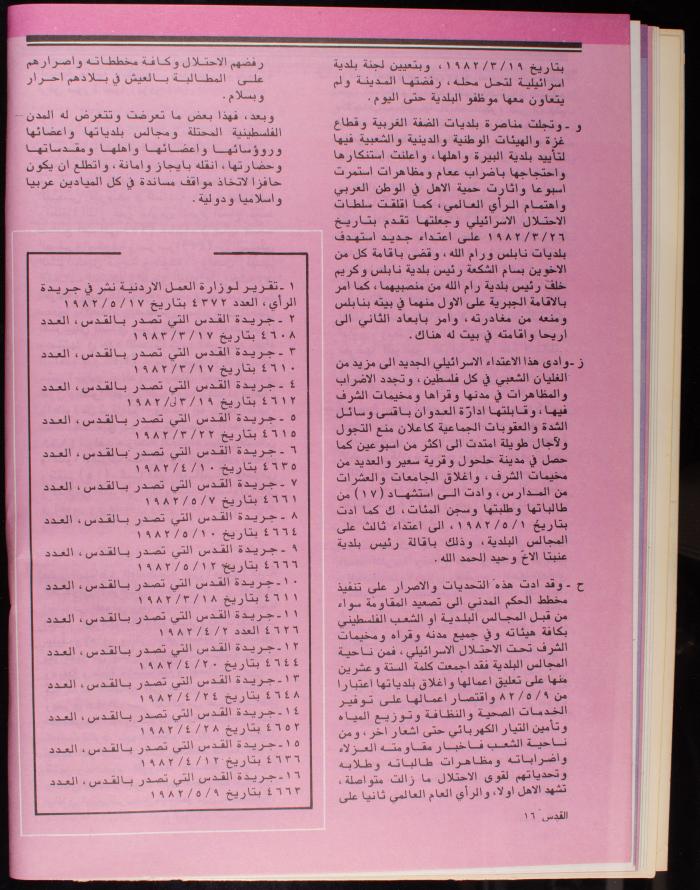 بتاريخ ١٩٨٢/٣/١٩، وبتعيين لجنة بلدية
اسرائيلية لتحل محله، رفضتها المدينة ولم
يتعاون معها موظفو البلدية حتى اليوم.
و ـ وتجلت مناصرة بلديات الضفة الغربية وقطاع
غزة والهيئات الوطنية والدينية والشعبية فيها
لتأييد بلدية البيرة واهلها، واعلنت استنكارها
واحتجاجها باضراب ععام ومظاهرات استمرت
اسبوعا واثارت حمية الاهل في الوطن العربي
واهتمام الرأي العالمي، كما اقلقت سلطات
الاحتلال الاسرائيلي وجعلتها تقدم بتاريخ
١٩٨٢/٣/٢٦ على اعتداء جديد استهدف
بلديات نابلس ورام الله، وقضى باقامة كل من
الاخوين بسام الشكعة رئيس بلدية نابلس وكريم
خلف رئيس بلدية رام الله من منصبيهما، كما امر
بالاقامة الجبرية على الاول منهما في بيته بنابلس
ومنعه من مغادرته، وامر بابعاد الثاني الى
اريحا واقامته في بيت له هناك.
ز ـ وادى هذا الاعتداء الاسرائيلي الجديد الى مزيد من
الغليان الشعبي في كل فلسطين، وتجدد الاضراب
والمظاهرات في مدنها وقراها ومخيمات الشرف
فيها، وقابلتها ادارة العدوان باقسى وسائل
الشدة والعقوبات الجماعية كاعلان منع التجول
ولآجال طويلة امتدت الى اكثر من اسبوعين كما
حصل في مدينة حلحول وقرية سعير والعديد من
مخيمات الشرف، واغلاق الجامعات والعشرات
من المدارس، وادت الى استشهاد (١٧) من
طالباتها وطلبتها وسجن المئات، ك كما ادت
بتاريخ ١٩٨٢/٥/١، الى اعتداء ثالث على
المجالس البلدية، وذلك باقالة رئيس بلدية
عنبتا الاخ وحيد الحمد الله.
ح ـ وقد ادت هذه التحديات والاصرار على تنفيذ
مخطط الحكم المدني الى تصعيد المقاومة سواء
من قبل المجالس البلدية او الشعب الفلسطيني
بكافة هيئاته وفي جميع مدنه وقراه ومخيمات
الشرف تحت الاحتلال الاسرائيلي، فمن ناحية
المجالس البلدية فقد اجمعت كلمة الستة وعشرين
منها على تعليق اعمالها واغلاق بلدياتها اعتبارا
من ٨٢/٥/٩ واقتصار اعمالها على توفير
الخدمات الصحية والنظافة وتوزيع المياه
وتأمين التيار الكهربائي حتى اشعار اخر، ومن
ناحية الشعب فاخبار مقاومته العزلاء
واضراباته ومظاهرات طالباته وطلابه
وتحدياتهم لقوى الاحتلال ما زالت متواصلة،
تشهد الاهل اولا، والرأي العام العالمي ثانيا على
رفضهم الاحتلال وكافة مخططاته واصرارهم
على المطالبة بالعيش في بلادهم احرار
وبسلام.
وبعد، فهذا بعض ما تعرضت وتتعرض له المدن
الفلسطينية المحتلة ومجالس بلدياتها واعضائها
ورؤسائها واعضائها واهلها ومقدساتها
وحضارتها، انقله بايجاز وامانة، واتطلع ان يكون
حافزا لاتخاذ مواقف مساندة في كل الميادين عربيا
واسلاميا ودولية.
١ ـ تقرير لوزارة العمل الاردنية نشر في جريدة
الرأي، العدد ٤٣٧٢ بتاريخ ١٩٨٢/٥/١٧
٢ ـ جريدة القدس التي تصدر بالقدس، العدد
٤٦٠٨ بتاريخ ١٩٨٣/٣/١٧
٣ ـ جريدة القدس التي تصدر بالقدس، العدد
٤٦١٠ بتاريخ ١٩٨٢/٣/١٧
٤ ـ جريدة القدس التي تصدر بالقدس، العدد
٤٦١٢ بتاريخ ١٩٨٢/٣/١٩
٥ ـ جريدة القدس التي تصدر بالقدس، العدد
٤٦١٥ بتاريخ ١٩٨٢/٣/٢٢
٦ ـ جريدة القدس التي تصدر بالقدس، العدد
٤٦٣٥ بتاريخ ١٩٨٢/٤/١٠
٧ ـ جريدة القدس التي تصدر بالقدس، العدد
٤٦٦١ بتاريخ ١٩٨٢/٥/٧
٨ ـ جريدة القدس التي تصدر بالقدس، العدد
٤٦٦٤ بتاريخ ١٩٨٢/٥/١٠
٩ ـ جريدة القدس التي تصدر بالقدس، العدد
٤٦٦٦ بتاريخ ١٩٨٢/٥/١٢
١٠ـ جريدة القدس التي تصدر بالقدس، العدد
٤٦١١ بتاريخ ١٩٨٢/٣/١٨
١١ـ جريدة القدس التي تصدر بالقدس، العدد
٤٦٢٦ العدد ١٩٨٢/٤/٢
١٢ـ جريدة القدس التي تصدر بالقدس، العدد
٤٦٤٤ بتاريخ ١٩٨٢/٤/٢٠
١٣ـ جريدة القدس التي تصدر بالقدس، العدد
٤٦٤٨ بتاريخ ١٩٨٢/٤/٢٤
١٤ـ جريدة القدس التي تصدر بالقدس، العدد
٤٦٥٢ بتاريخ ١٩٨٢/٤/٢٨
١٥ـ جريدة القدس التي تصدر بالقدس، العدد
٤٦٣٦ بتاريخ ١٩٨٢/٤/١٢
١٦ـ جريدة القدس التي تصدر بالقدس، العدد
٤٦٦٣ بتاريخ ١٩٨٢/٥/٩
القدس ١٦